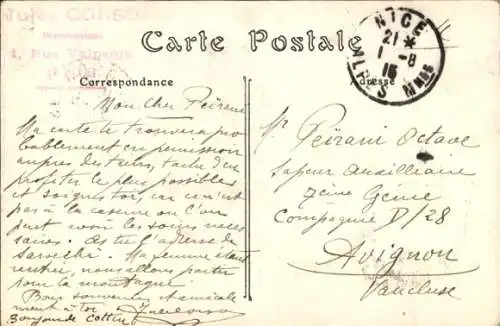 Jules CONSO
1, Rue
NICE
Carte Postale
NICE
21 *
1 - 8
15
ALPES MMES
Correspondance
Adresse
Mon cher Peïrani
Ma carte te trouvera pro
bablement en permission
auprès des tiens, tache d'en
profiter le plus possible
et soignes toi, ce n'est
pas à la caserne où l'on
peut avoir les soins neces
saires. As tu l'adresse de
Ma femme étant
rentrée, nous allons partir
pour la montagne
Bons souvenirs et amicale
ment à toi
Bonjour de
Mr Peïrani Octave
Sapeur auxilliaire
7ème Génie
Compagnie D/28
Avignon
Vaucluse